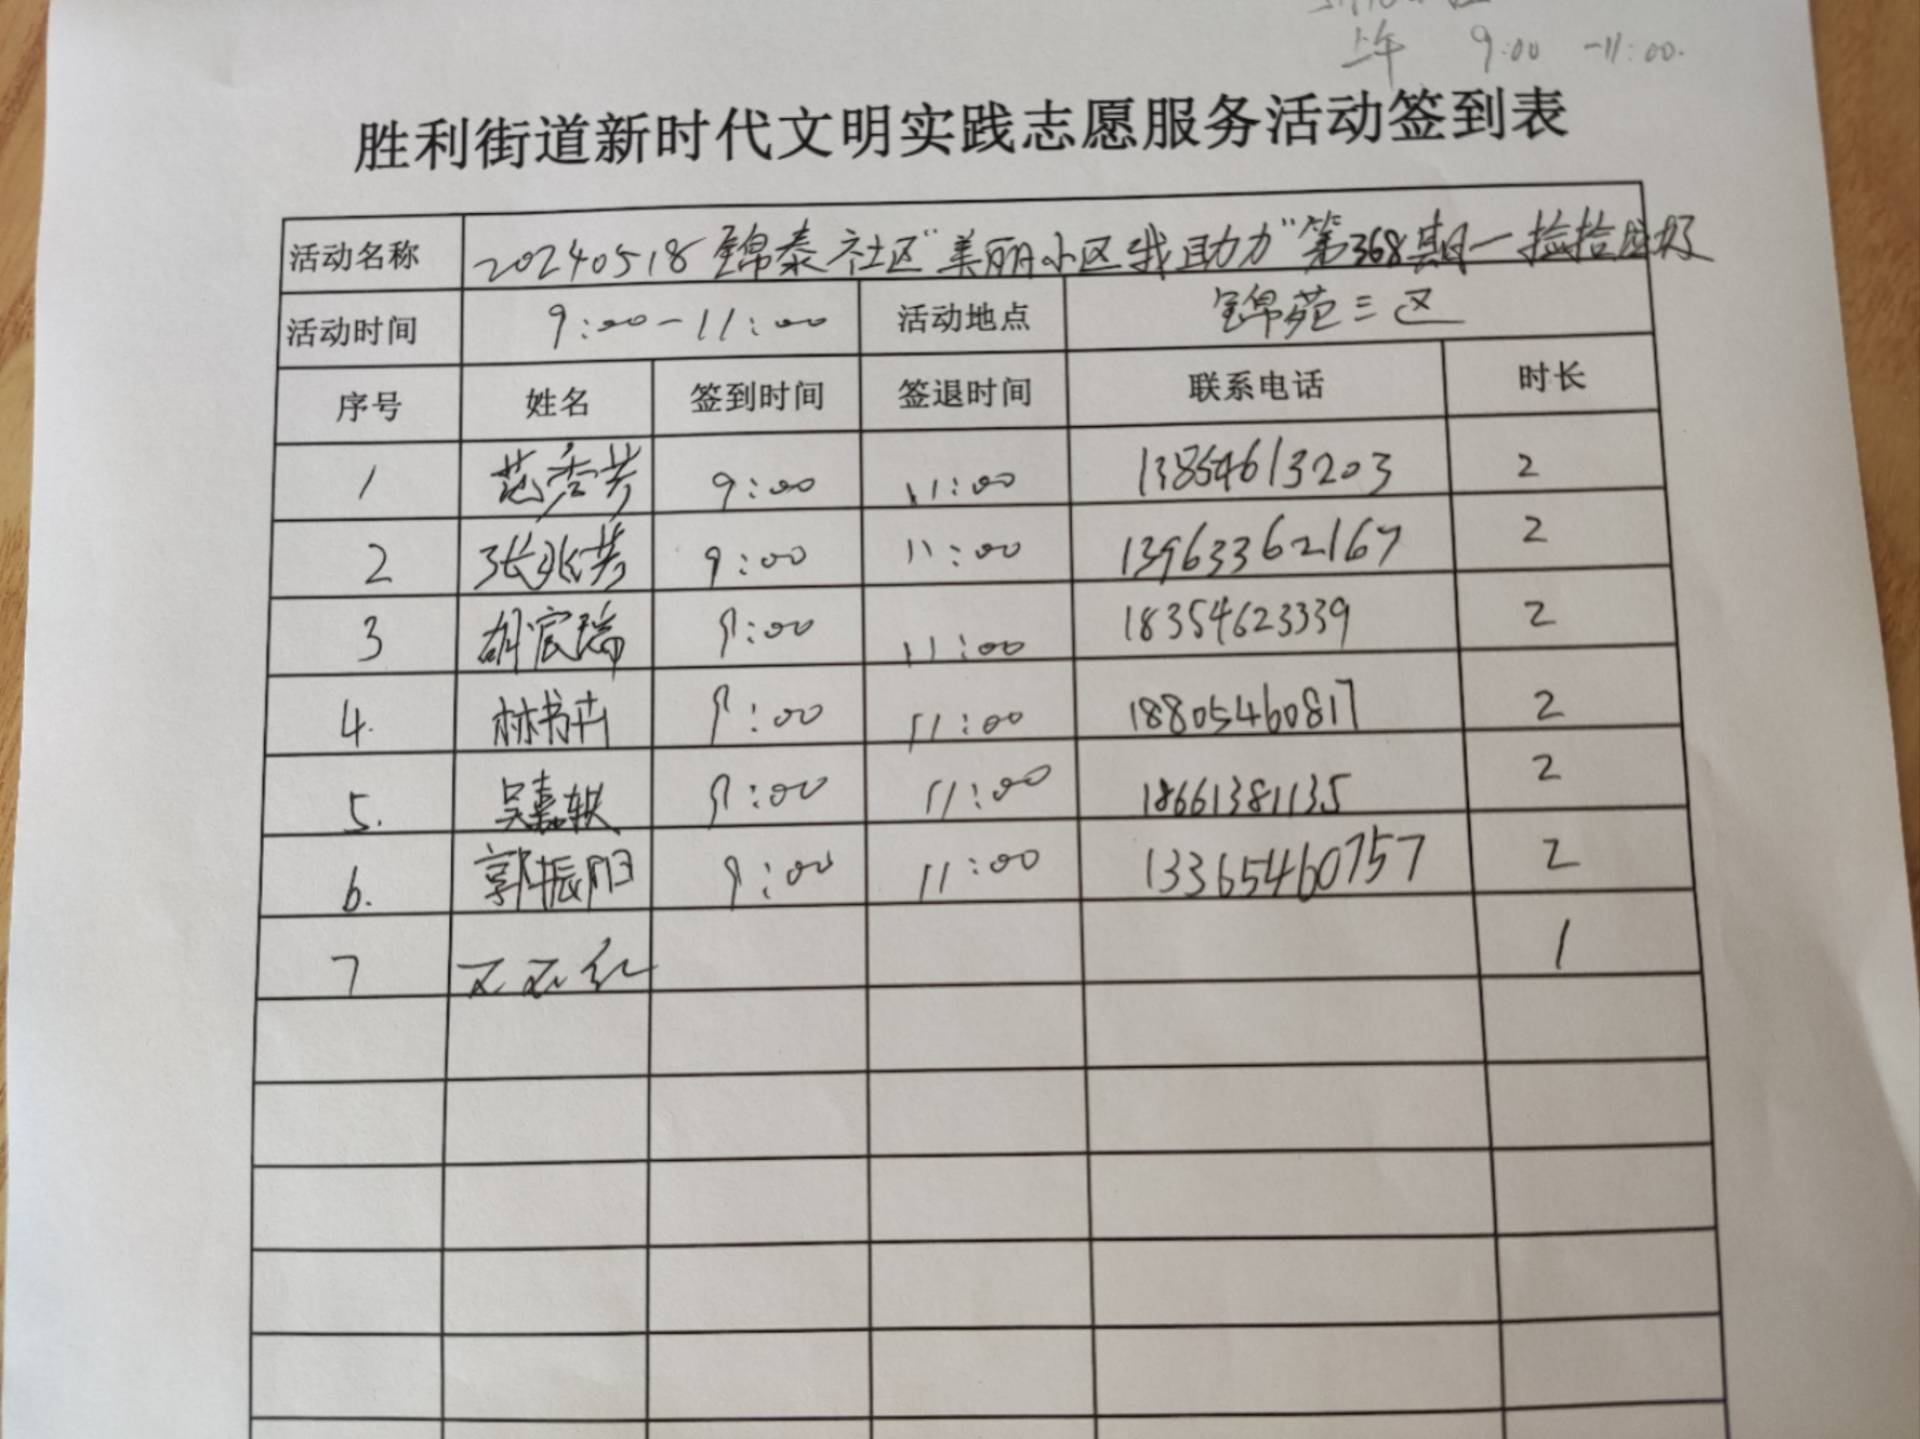 上午 9:00 -11:00.
胜利街道新时代文明实践志愿服务活动签到表
活动名称 20240518锦泰社区"美丽小区我助力"第368期一捡拾垃圾
活动时间 9:00-11:00 活动地点 锦苑三区
序号 姓名 签到时间 签退时间 联系电话 时长
1 范秀芳 9:00 11:00 13854613203 2
2 张兆芳 9:00 11:00 13963362167 2
3 胡宸瑞 9:00 11:00 18354623339 2
4. 林书卉 9:00 11:00 18805460817 2
5. 吴嘉轶 9:00 11:00 18661381135 2
6. 郭振阳 9:00 11:00 13365460757 2
7 红 1